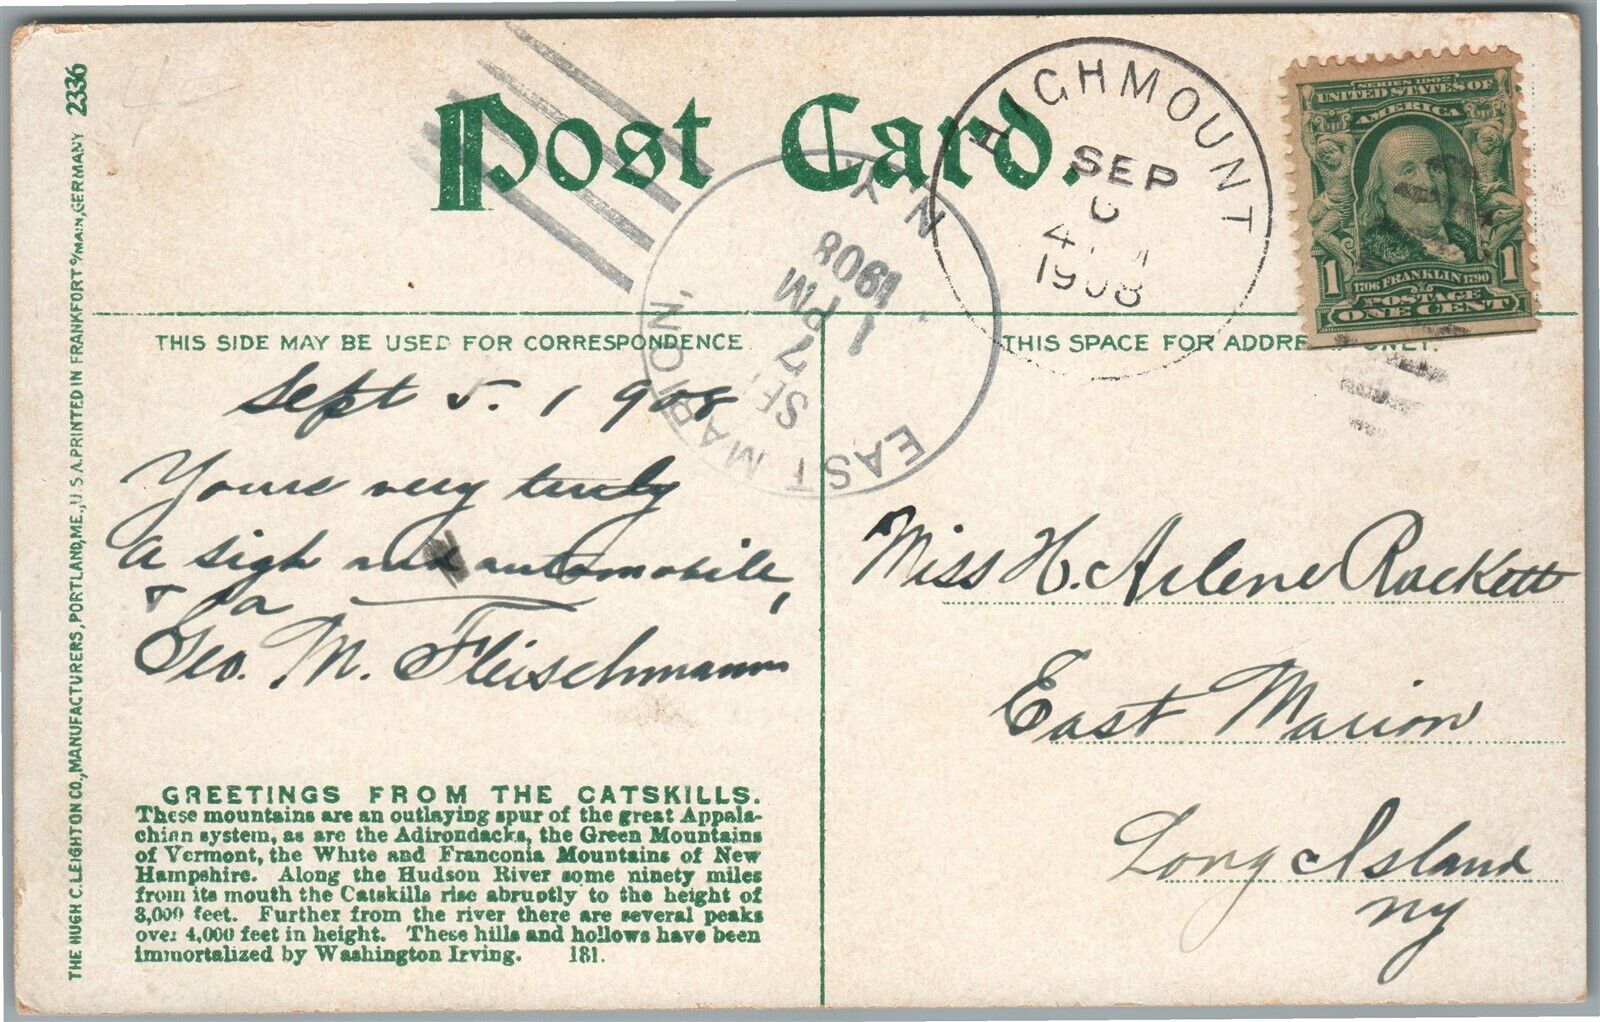 2336
THE HUGH C. LEIGHTON CO., MANUFACTURERS, PORTLAND, ME., U.S.A. PRINTED IN FRANKFORT o/MAIN, GERMANY
Post Card.
HIGHMOUNT
SEP
4
1908
N.Y.
1908
1 PM
7
EAST MARION
SERIES 1902
UNITED STATES OF
AMERICA
1 1
1706 FRANKLIN 1790
POSTAGE
ONE CENT
THIS SIDE MAY BE USED FOR CORRESPONDENCE
THIS SPACE FOR ADDRE ONLY.
Sept 5. 1908
Yours very truly
A sigh automobile,
Geo. M. Fleischmann
Miss H. Arlene Rackett
East Marion
Long Island
NY
GREETINGS FROM THE CATSKILLS.
These mountains are an outlaying spur of the great Appala-
chian system, as are the Adirondacks, the Green Mountains
of Vermont, the White and Franconia Mountains of New
Hampshire. Along the Hudson River some ninety miles
from its mouth the Catskills rise abruptly to the height of
3,000 feet. Further from the river there are several peaks
over 4,000 feet in height. These hills and hollows have been
immortalized by Washington Irving. 181.